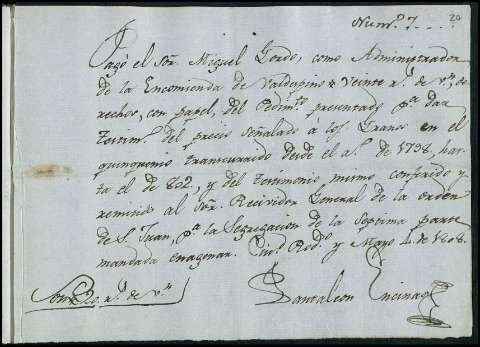 Num.º 7 20
Pagó el Sñr. Miguel Gordo, como Administrador
de la Encomienda de Valdespino veinte r.s de v.n, de-
rechos, con papel, del Pedim.to presentado p.a dar
Testim.o del precio señalado á los Granos en el
quinquenio transcurrido desde el a.o de 1798, has-
ta el de 802, y del testimonio mismo conferido y
remitido al Sñr. Recividor General de la orden
de S. Juan, p.a la Segregacion de la Septima parte
mandada enagenar. Ciu.d Rod.o y Mayo 4 de 1808.
Son 20 r.s de v.n
Pantaleon Encinas